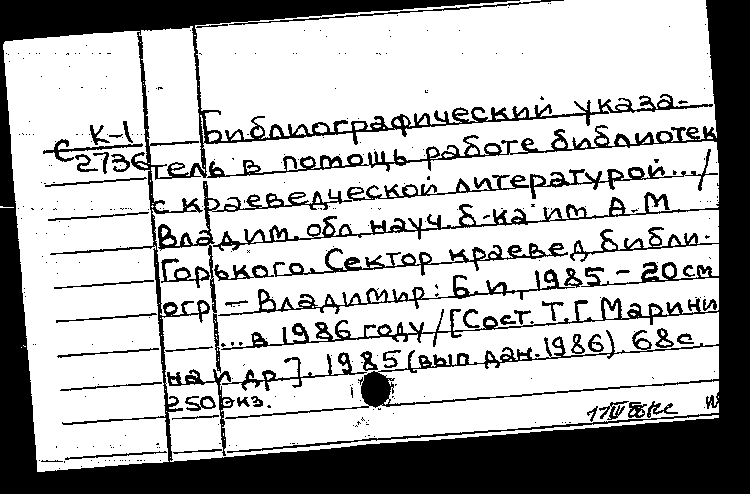 К-1
с 2736
Библиографический указа-
тель в помощь работе библиотек
с краеведческой литературой.../
Владим. обл. науч. б-ка им. А.М
Горького. Сектор краевед. библи-
огр. – Владимир: Б.и., 1985. – 20 см
... в 1986 году / [Сост. Т.Г. Марини
на и др.]. 1985 (вып. дан. 1986). 68 с.
250 экз.